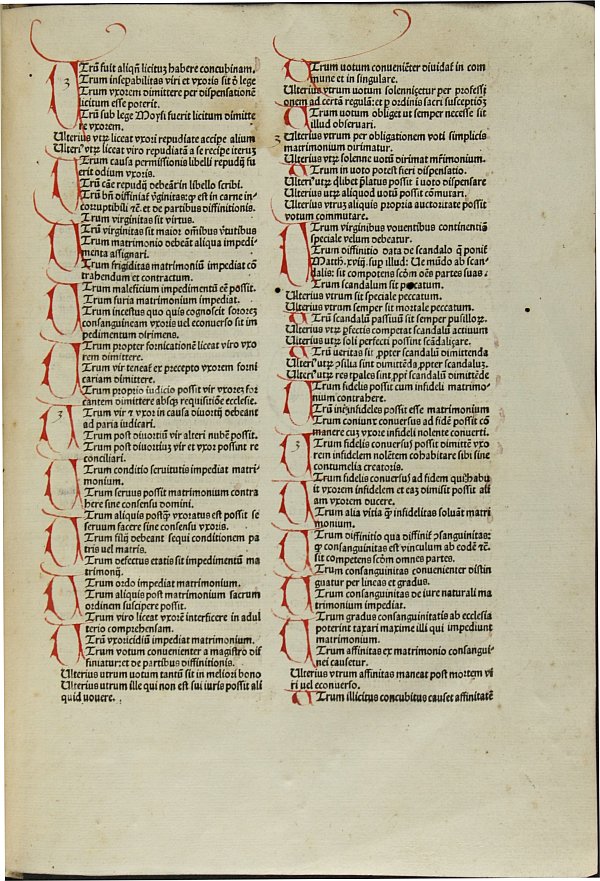 UTrū fuit aliqn̄ licituʒ habere concubinam.
3 Utrum insepabilitas viri et vxoris sit ō lege
Utrum vxorem dimittere per dispensationē
licitum esse poterit.
Utrū sub lege Moysi fuerit licitum dimitte
re vxorem.
Ulterius vtrꝫ liceat vxori repudiate accipe alium
Ulteriꝰ vtrꝫ liceat viro repudiatā a se recipe iteruʒ
Utrum causa permissionis libelli repudij fu
erit odium vxoris.
Utrū cāe repudij debeāt in libello scribi.
Utrū bn̄ diffiniaſ v̓ginitas: ꝙ est in carne in⸗
corruptibili ⁊c̄. et de partibus diffinitionis.
Utrum virginitas sit virtus.
Utrū virginitas sit maior om̄ibus v̓tutibus
Utrum matrimonio debeāt aliqua impedi⸗
menta assignari.
Utrum frigiditas matrimoniū impediat cō
trahendum et contractum.
Utrum maleficium impedimentū eē possit.
Utrum furia matrimonium impediat.
Utrum incestus quo quis cognoscit sororeʒ
consanguineam vxoris uel econuerso sit im
pedimentum dirimens.
Utrum propter fornicationē liceat viro vxo
rem dimittere.
Utrum vir teneaſ ex precepto vxorem forni
cariam dimittere.
Utrum proprio iudicio possit vir vxoreʒ for
cantem dimittere absqꝫ requisitiōe ecclesie.
3 Utrum vir ⁊ vxor in causa diuortij debeant
ad paria iudicari.
Utrum post diuortiū vir alteri nubē possit.
Utrum post diuortiuʒ vir et vxor possint re
conciliari.
Utrum conditio seruitutis impediat matri⸗
monium.
Utrum seruus possit matrimonium contra
here sine consensu domini.
Utrum aliquis postꝙ vxoratus est possit se
seruum facere sine consensu vxoris.
Utrum filij debeant sequi conditionem pa
tris uel matris.
Utrum defectus etatis sit impedimentū ma
trimonij.
Utrum ordo impediat matrimonium.
Utrum aliquis post matrimonium sacrum
ordinem suscipere possit.
Utrum viro liceat vxorē interficere in adul
terio comprehensam.
Utrū vxoricidiū impediat matrimonium.
Utrum votum conuenienter a magistro dif
finiatur: et de partibus diffinitionis.
Ulterius vtrum uotum tantū sit in meliori bono
Ulterius utrum ille qui non est sui iuris possit ali
quid uouere.
Utrum uotum conueniēter diuidaſ in com
mune et in singulare.
Ulterius vtrum uotum solennizetur per professi
onem ad certā regulā: et ꝑ ordinis sacri susceptiōʒ
Utrum uotum obliget ut semper necesse sit
illud obseruari.
3 Ulterius vtrum per obligationem voti simplicis
matrimonium dirimatur.
Ulterius vtrꝫ solenne uotū dirimat mr̄imonium.
Utrum in uoto potest fieri dispensatio.
Ulteriꝰ utrꝫ q̄libet p̄latus possit ī uoto dispensare
Ulteriꝰ utrꝫ aliquod uotū possit cōmutari.
Ulterius vtruʒ aliquis propria auctoritate possit
votum commutare.
Utrum virginibus vouentibus continentiā
speciale velum debeatur.
Utrum diffinitio data de scandalo q̄ poniſ
Matth. xviij. sup illud: Ue mūdo ab scan⸗
dalis: sit competens scḋm oēs partes suas.
Utrum scandalum sit peccatum.
Ulterius vtrum sit speciale peccatum.
Ulterius vtrum semper sit mortale peccatum.
Utrū scandalū passiuū sit semper pusilloꝝ.
Ulterius vtrꝫ ꝑfectis competat scandalū actiuum
Ulterius utrꝫ soli perfecti possint scādaliçare.
Utrū ueritas sit ꝓpter scandalū dimittenda
Ulteriꝰ utrꝫ ꝯsilia sint dimittēda ꝓpter scandaluʒ.
Ulteriꝰ utrꝫ res tꝑales sint ꝓpt̓ scandalū dimittēde
Utrum fidelis possit cum infideli matrimo⸗
nium contrahere.
Utrū int̓ infideles possit esse matrimonium
Utrum coniunx conuersus ad fidē possit cō
manere cuʒ vxore infideli nolente conuerti.
3 Utrum fidelis conuersus possit dimittē vxo
rem infidelem nolētem cohabitare sibi sine
contumelia creatoris.
Utrum fidelis conuersus ad fidem quē habu
it vxorem infidelem et eaʒ dimisit possit ali
am vxorem ducere.
Utrum alia vitia ꝙ̄ infidelitas soluāt matri
monium.
Utrum diffinitio qua diffiniſ ꝯsanguinitas:
ꝙ consanguinitas est vinculum ab eodē ⁊c̄.
sit competens scḋm omnes partes.
Utrum consanguinitas conuenienter distin
guatur per lineas et gradus.
Utrum consanguinitas de iure naturali ma
trimonium impediat.
Utrum gradus consanguinitatis ab ecclesia
poterint taxari maxime illi qui impediunt
matrimonium.
Utrum affinitas ex matrimonio consangui⸗
nei causetur.
Ulterius vtrum affinitas maneat post mortem vi
ri uel econuerso.
Utrum illicitus concubitus causet affinitatē